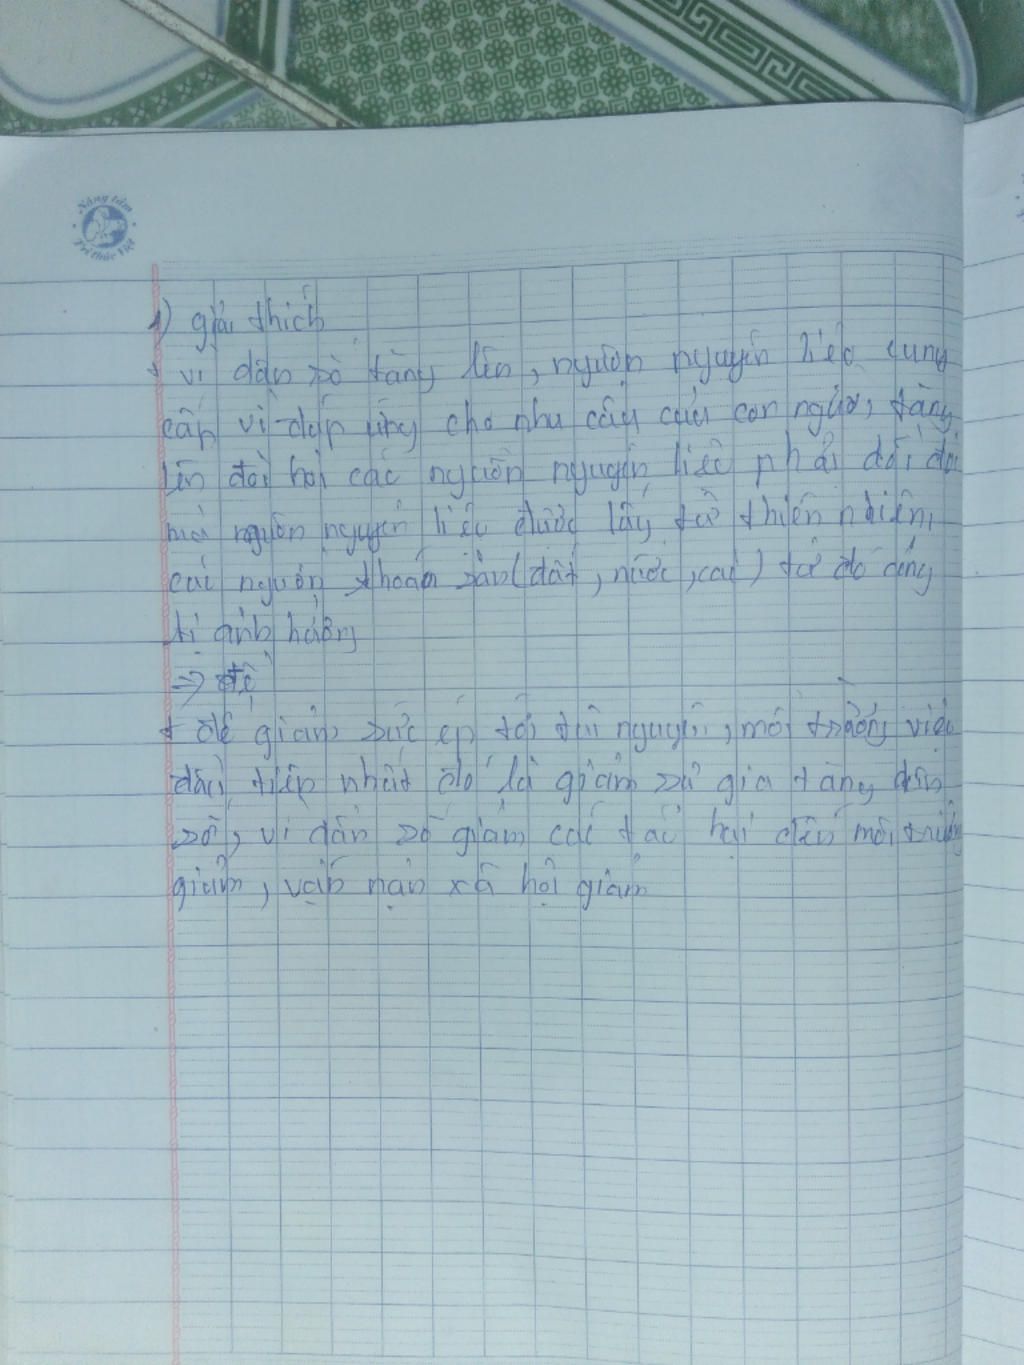 Nâng tầm
Trí thức Việt
1) giải thích
+ vì dân số tăng lên, nguồn nguyên liệu cung
cấp vì đáp ứng cho nhu cầu của con người, tăng
lên đòi hỏi các nguồn nguyên liệu phải dồi dào
mà nguồn nguyên liệu được lấy từ thiên nhiên,
các nguồn khoán sản (đất, nước, cát) từ đó cũng
bị ảnh hưởng
=> để
+ để giảm sức ép tới tài nguyên, môi trường việc
đầu tiên nhất đó là giảm sự gia tăng dân
số, vì dân số giảm các tác hại đến môi trường
giảm, vấn nạn xã hội giảm